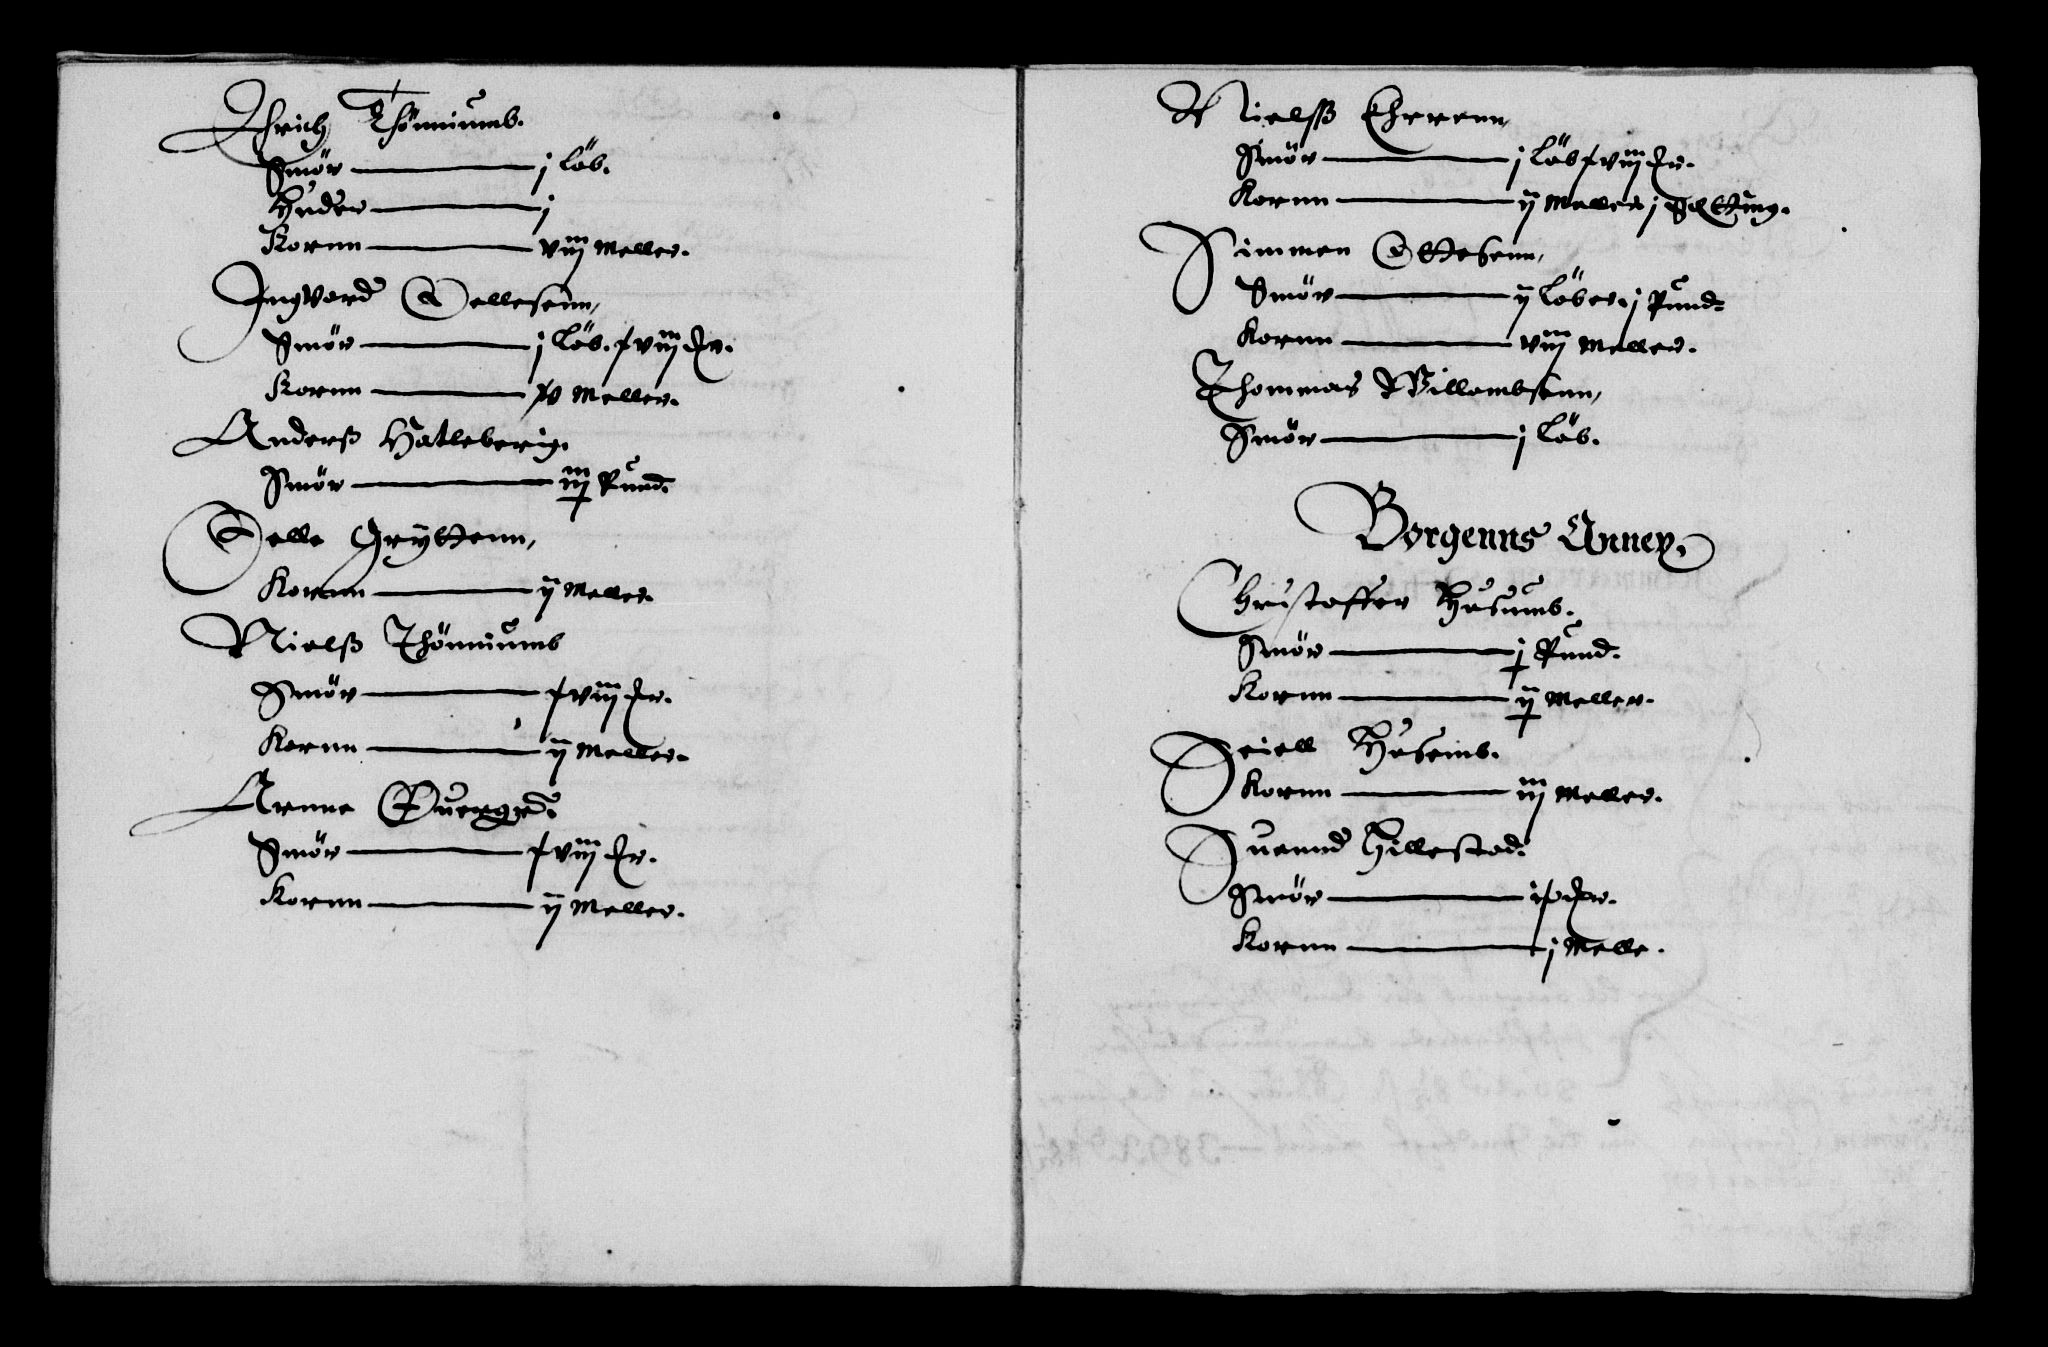 Ehrich Thönniumb.
Smör — j löb.
Huder — j
Kornn — viij Meller.
Ingvord Sellesenn,
Smör — j löb. xviij mr.
Kornn — xv Meller.
Anderß Hatleberig.
Smör — iij Pund.
Selle Gryttenn,
Kornn — ij Meller.
Nielß Thönniumb
Smör — xviij mr.
Kornn — ij Meller.
Arnne
Smör — xviij mr.
Kornn — ij Meller.
Nielß Ehrrenn,
Smör — j löb xviij mr.
Kornn — ij Meller j Setting.
Simmen Ottesenn,
Smör — ij löber j Pund.
Kornn — viij Meller.
Thommas Willombsenn,
Smör — j löb.
Borgenns Annex.
Christoffer Husumb.
Smör — j Pund.
Kornn — ij Meller.
Seiell Husemb.
Kornn — iij Meller.
Suennd Hillestad.
Smör — ix mr.
Kornn — j Melle.